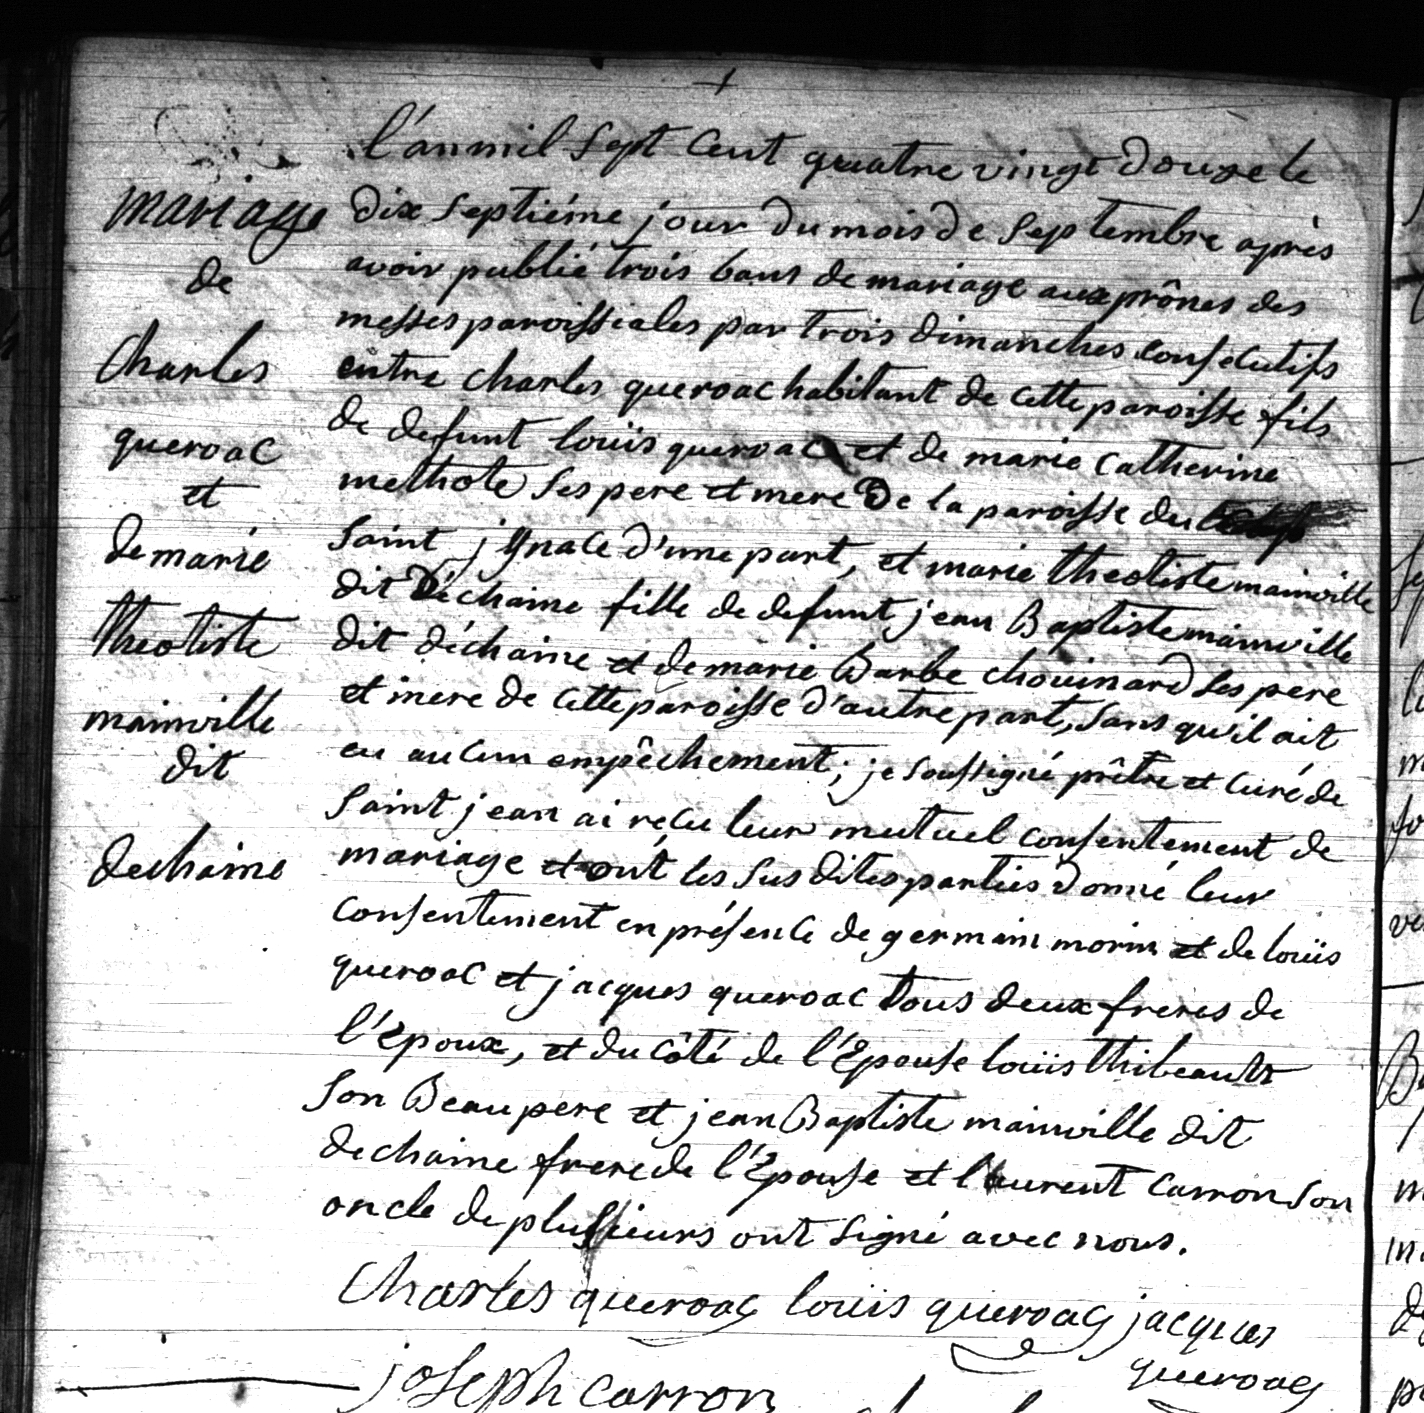 mariage
de
Charles
queroac
et
de marie
theotiste
mainville
dit
dechaine
l'an mil Sept Cent quatre vingt Douze le
dix Septiéme jour du mois de Septembre après
avoir publié trois bans de mariage aux prônes des
messes paroissiales par trois dimanches Consecutifs
entre charles queroac habitant de Cette paroisse fils
de defunt loüis queroac et de marie Catherine
methote Ses pere et mere De la paroisse du
Saint jgnace d'une part, et marie theotiste mainville
dit Déchaine fille de defunt jean Baptiste mainville
dit déchaine et de marie Barbe chouinard Ses pere
et mere de Cette paroisse d'autre part, Sans qu'il ait
eu aucun empêchement; je Soussigné prêtre et Curé de
Saint jean ai reçu leur mutuel Consentement de
mariage et ont les Susdites parties donné leur
Consentement en présence de germain morin et de loüis
queroac et jacques queroac tous deux freres de
l'Epoux, et du Côté de l'Epouse loüis thibeault
Son Beaupere et jean Baptiste mainville dit
dechaine frere de l'Epouse et laurent Carron Son
oncle de plusieurs ont Signé avec nous.
Charles queroac louis queroac jacques
queroac
joseph carron